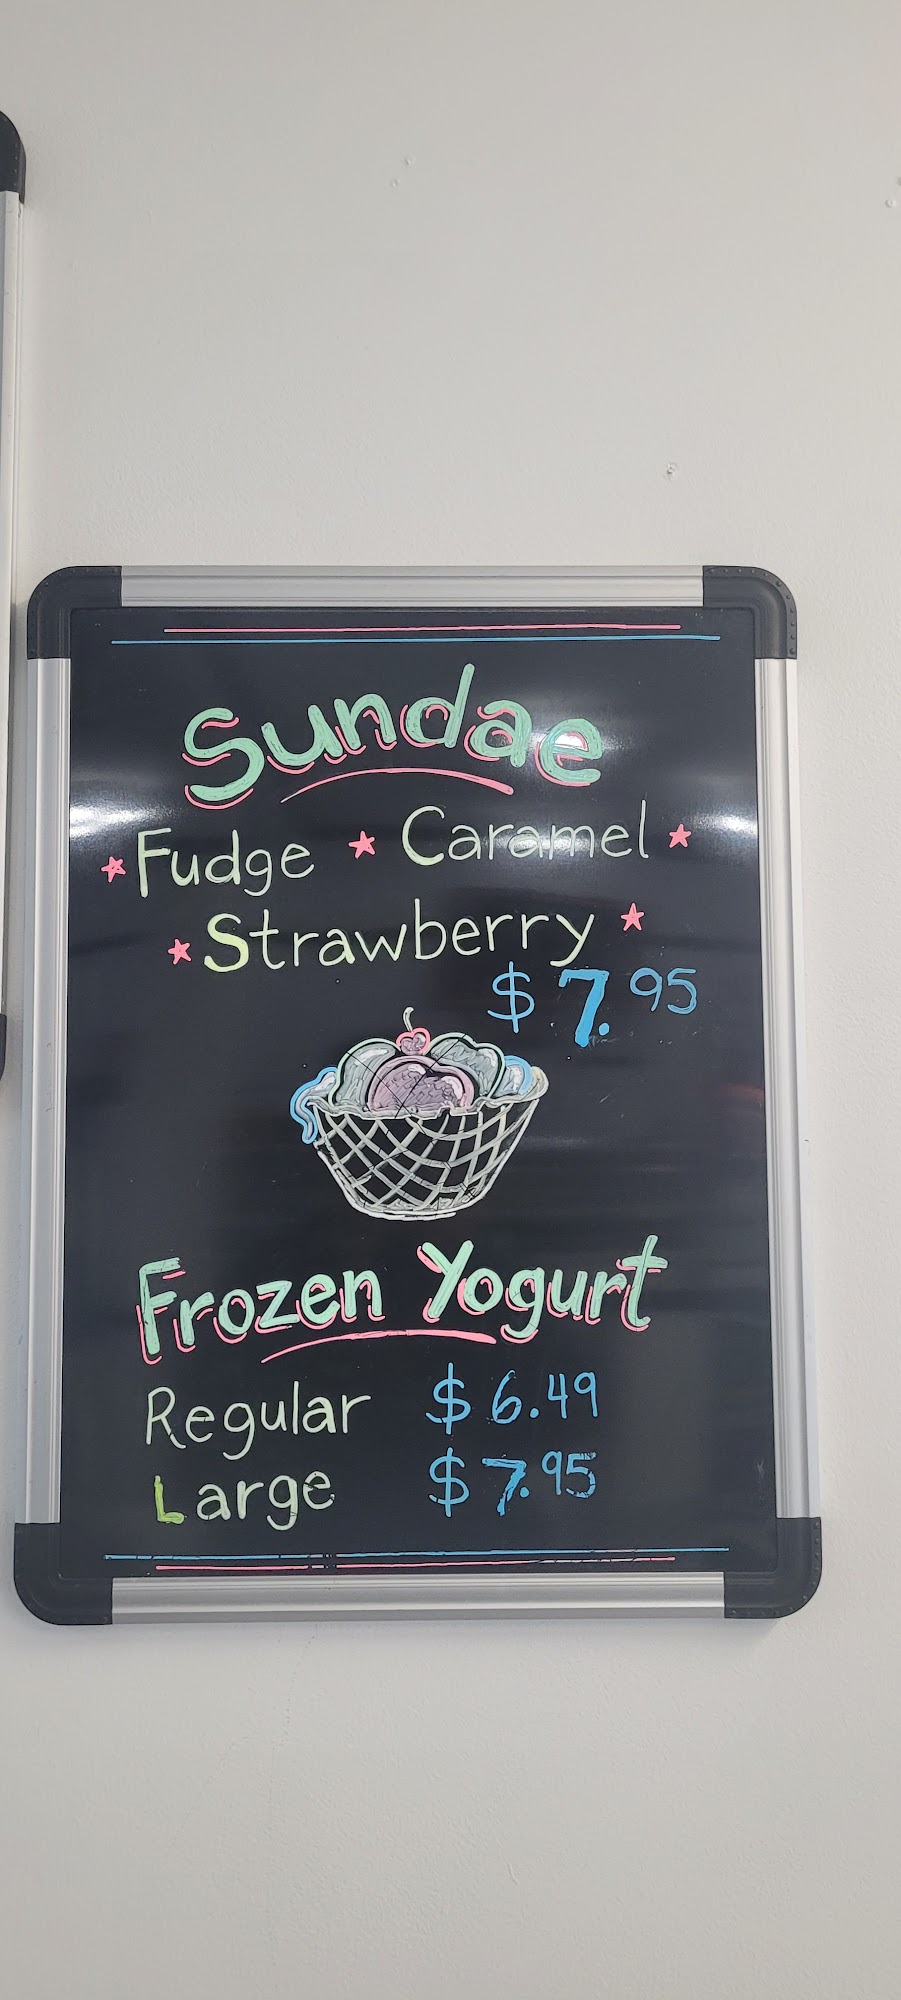 Sundae
Fudge Caramel
Strawberry
$7.95
Frozen Yogurt
Regular $6.49
Large $7.95